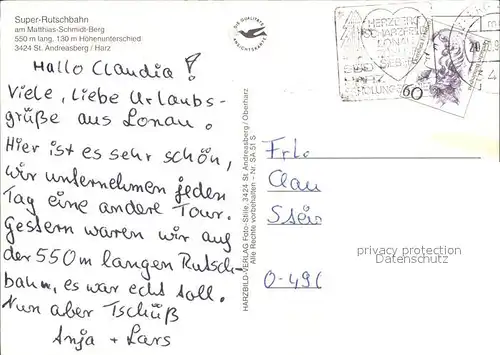 Super-Rutschbahn
am Matthias-Schmidt-Berg
550 m lang, 130 m Höhenunterschied
3424 St. Andreasberg / Harz
Hallo Claudia!
Viele, liebe Urlaubs-
grüße aus Lonau.
Hier ist es sehr schön,
wir unternehmen jeden
Tag eine andere Tour.
Gestern waren wir auf
der 550m langen Rutsch-
bahn, es war echt toll.
Nun aber Tschüß
Anja + Lars
HARZBILD-VERLAG Foto-Stille, 3424 St. Andreasberg / Oberharz
Alle Rechte vorbehalten - Nr. SA 51 S
DIE QUALITÄTS
ANSICHTSKARTE
HERZBERG
LONAU
60
Frl.
Clau
Stein
O-490
privacy protection
Datenschutz